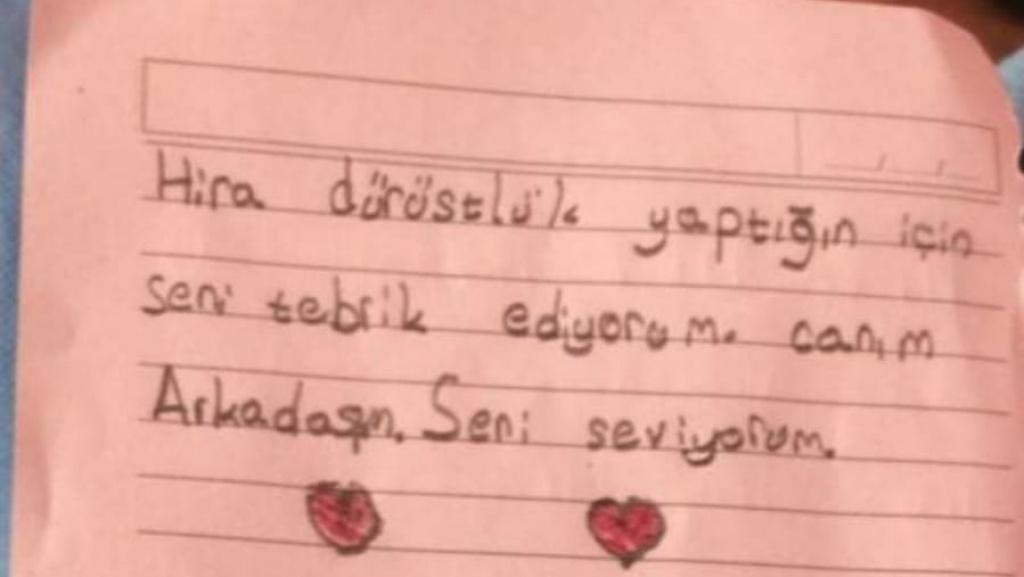 Hira dürüstlük yaptığın için
seni tebrik ediyorum. canım
Arkadaşın. Seni seviyorum.